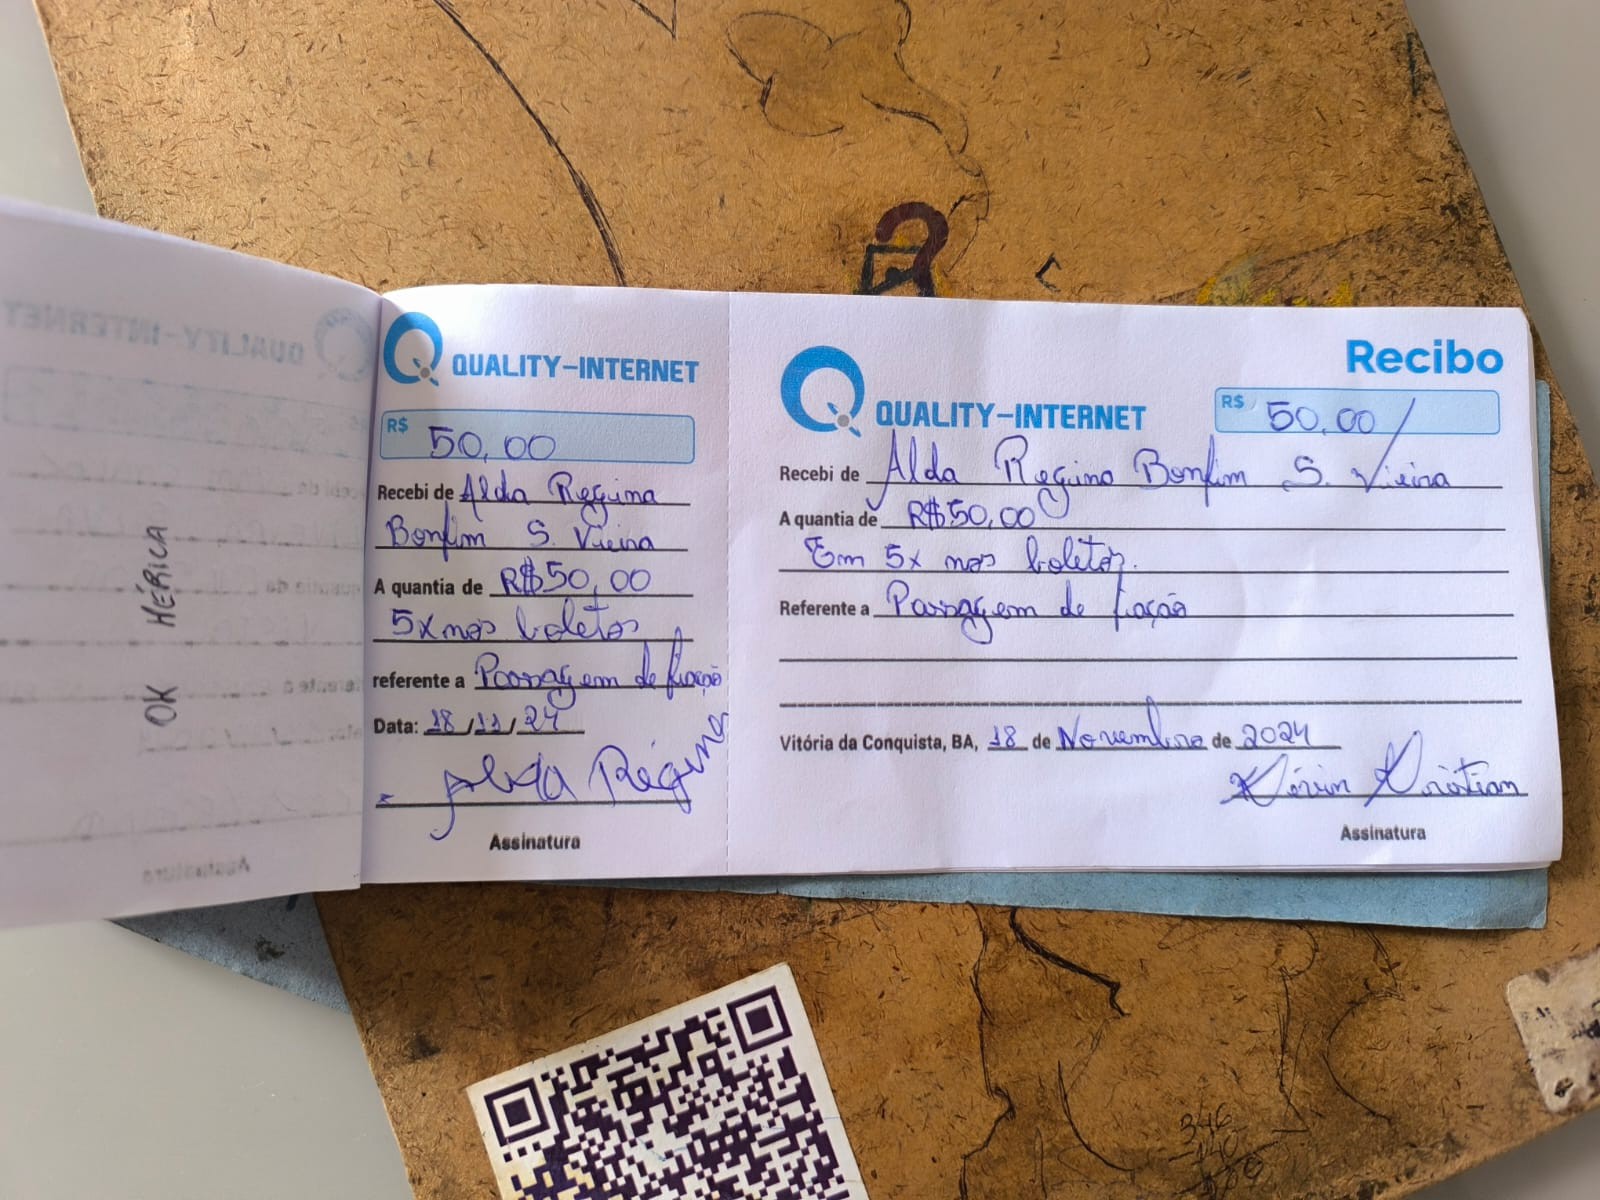 OK HÉRICA
QUALITY-INTERNET
R$ 50,00
Recebi de Alda Regina
Bonfim S. Vieira
A quantia de R$50,00
5x nos boletos
referente a Passagem de fiação
Data: 18/11/24
Alda Regina
Assinatura
Recibo
QUALITY-INTERNET
R$ 50,00
Recebi de Alda Regina Bonfim S. Vieira
A quantia de R$50,00
Em 5x nos boletos.
Referente a Passagem de fiação
Vitória da Conquista, BA, 18 de Novembro de 2024
Kérin Kristian
Assinatura
346